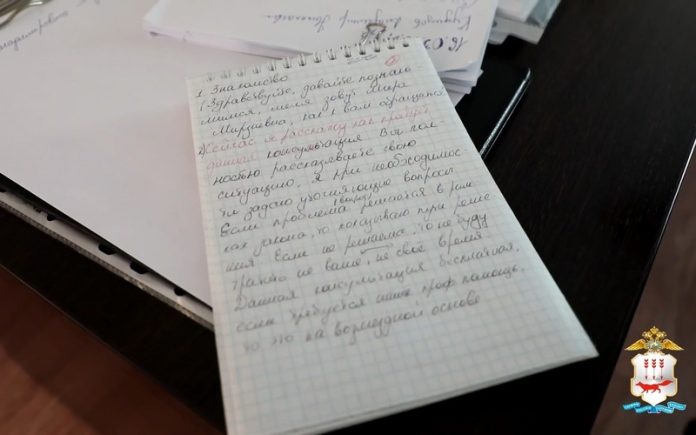 1. Знакомство
(Здравствуйте, давайте познако
мимся, меня зовут Мира
Мирзаевна, как к вам обращаться
Сейчас я расскажу как пройдёт
данная консультация. Вы пол-
ностью рассказываете свою
ситуацию, я при необходимос
ти задаю уточняющие вопросы
Если проблема решается в рам
ках закона, то показываю пути реше
ния. Если не решаема, то не буду
тратить ни ваше, ни своё время
Данная консультация бесплатная,
если требуется проф. помощь,
то это на возмездной основе
16.02